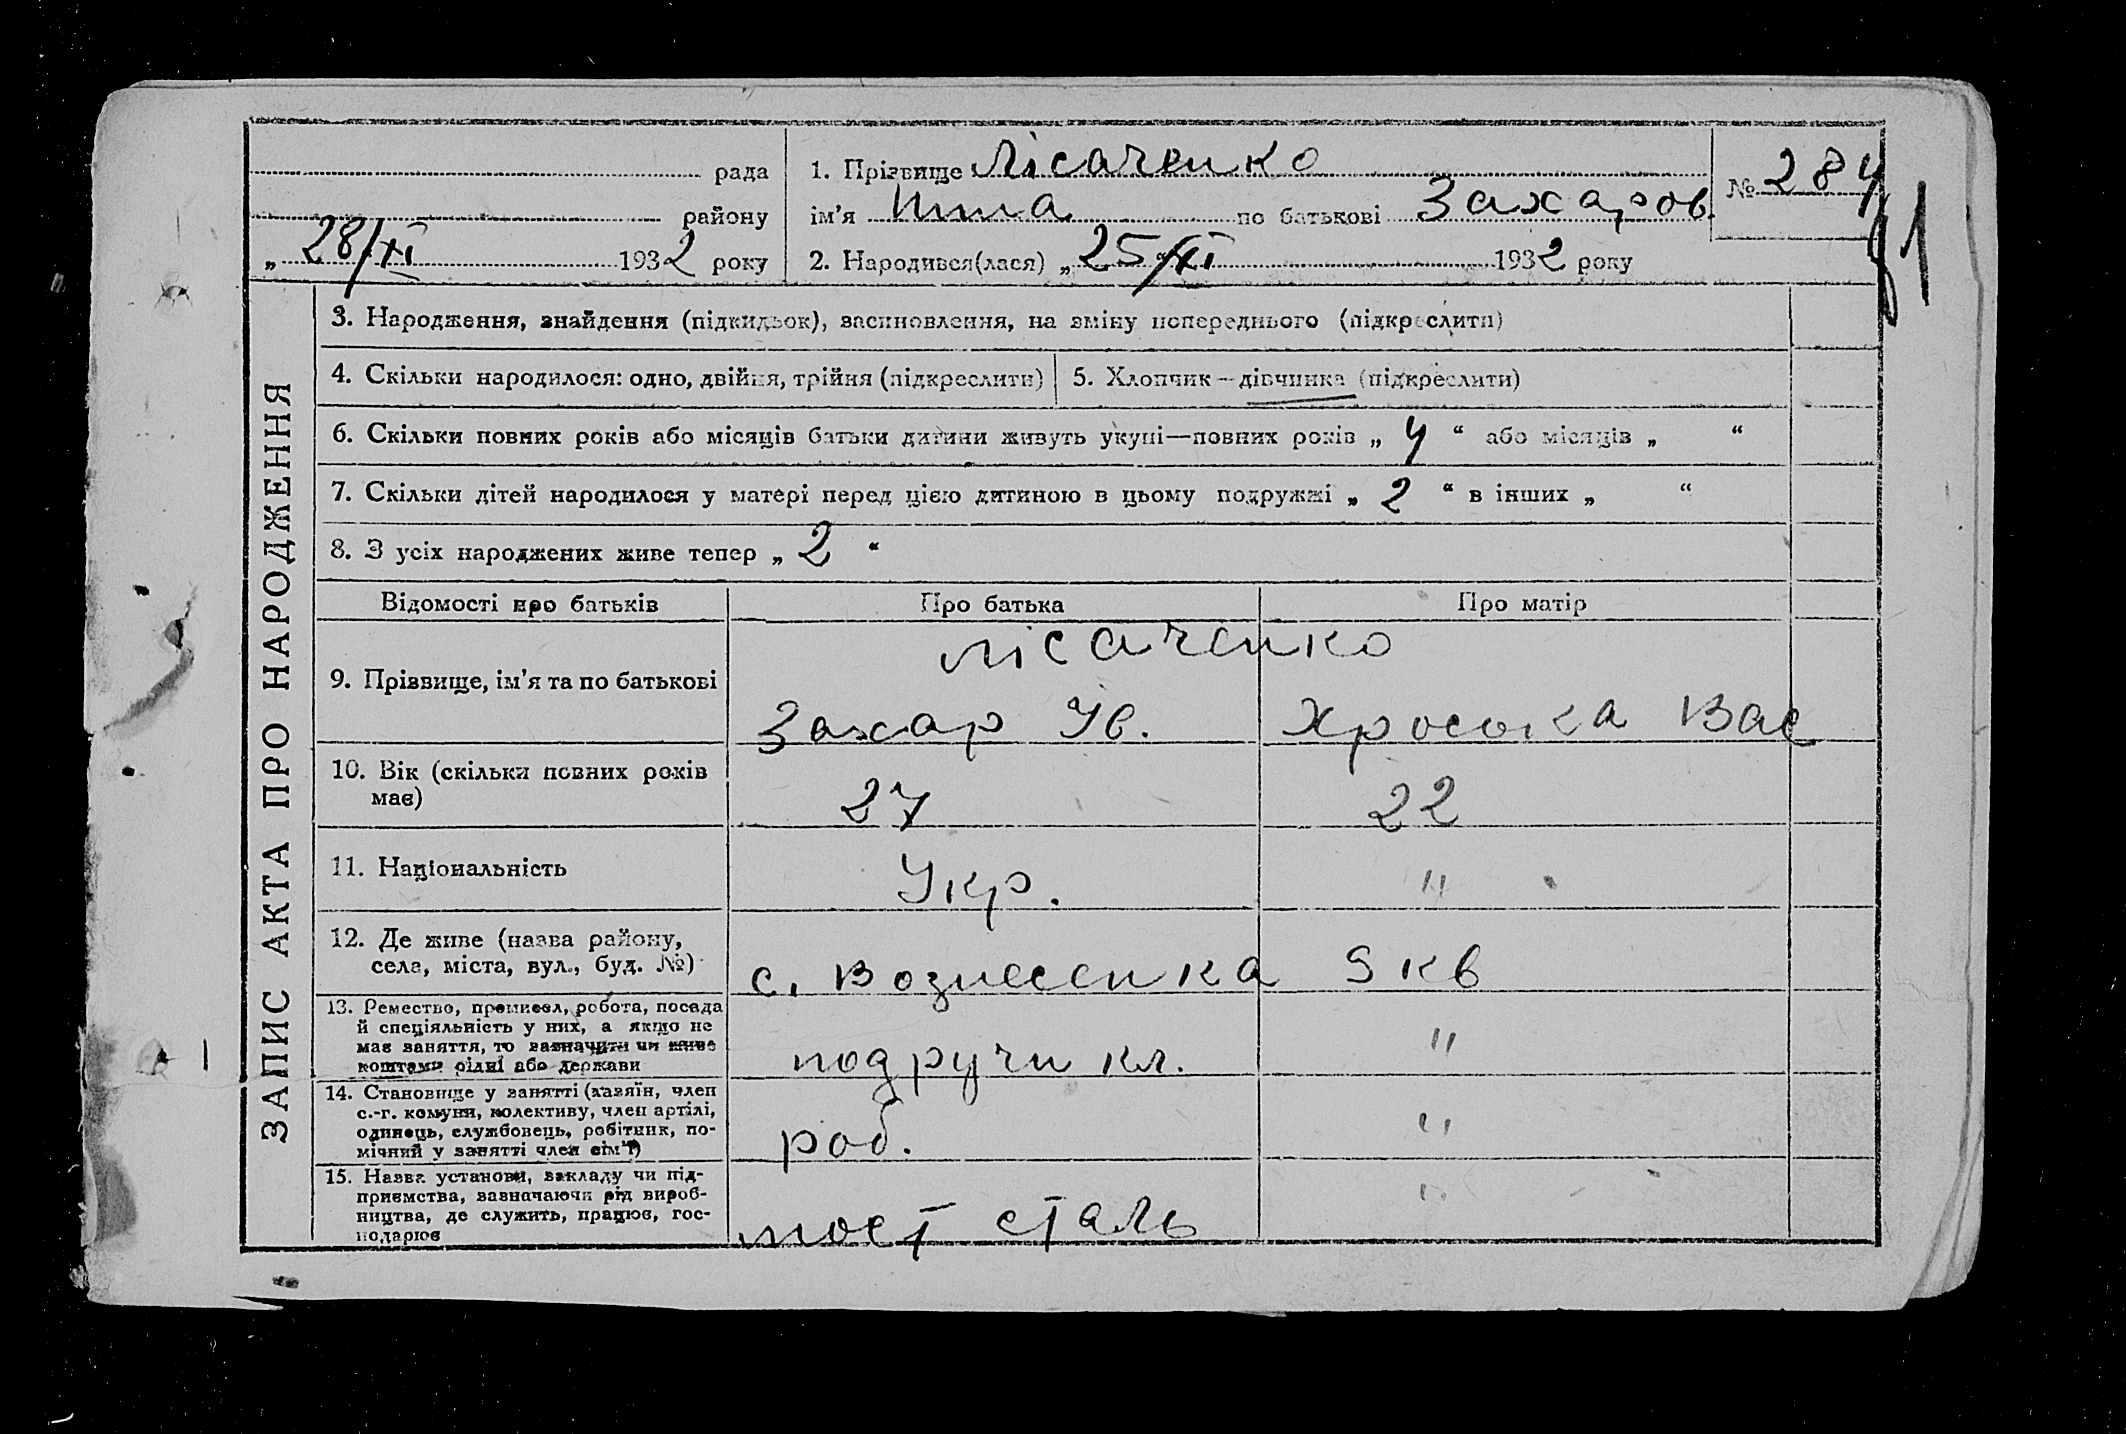 рада
району
„ 28/XI 1932 року
1. Прізвище Лісаченко
ім’я по батькові Захаров
2. Народився(лася) „ 25/XI 1932 року
№ 284
ЗАПИС АКТА ПРО НАРОДЖЕННЯ
3. Народження, знайдення (підкидьок), засиновлення, на зміну попереднього (підкреслити)
4. Скільки народилося: одно, двійня, трійня (підкреслити)
5. Хлопчик – дівчинка (підкреслити)
6. Скільки повних років або місяців батьки дитини живуть укупі—повних років „ 4 “ або місяців „ “
7. Скільки дітей народилося у матері перед цією дитиною в цьому подружжі „ 2 “ в інших „ “
8. З усіх народжених живе тепер „ 2 “
Відомості про батьків
Про батька
Про матір
9. Прізвище, ім’я та по батькові
Лісаченко
Захар Ів.
Хроська Вас
10. Вік (скільки повних років
має)
27
22
11. Національність
Укр.
"
12. Де живе (назва району,
села, міста, вул., буд. №)
с. Вознесенка 5 кв
13. Ремество, промисел, робота, посада
й спеціяльність у них, а якщо не
має заняття, то зазначити чи живе
коштами рідні або держави
подручн кл.
"
14. Становище у занятті (хазяїн, член
с.-г. комуни, колективу, член артілі,
одинець, службовець, робітник, по-
мічний у занятті член сім’ї)
роб.
"
15. Назва установи, закладу чи під-
приємства, зазначаючи рід вироб-
ництва, де служить, працює, гос-
подарює
мост сталь
"